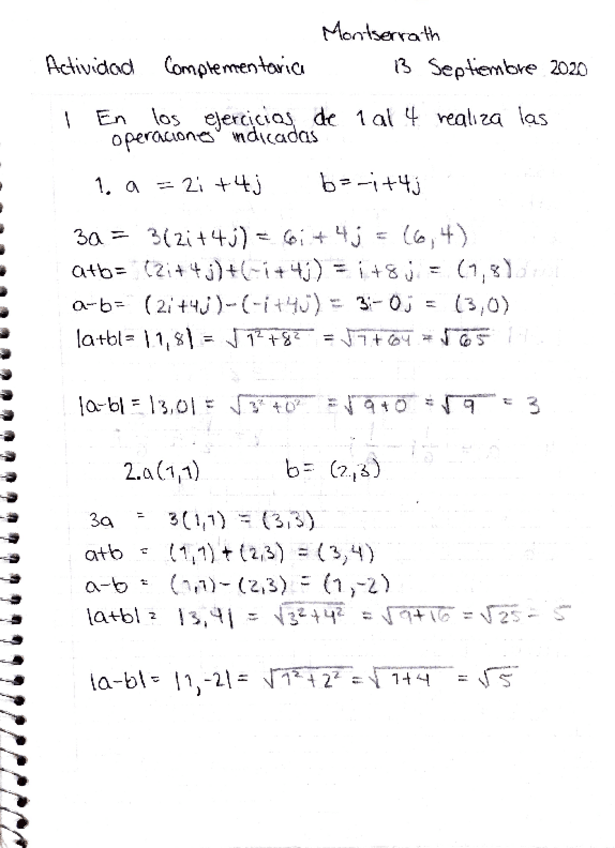 Montserrath
Actividad Complementaria 13 Septiembre 2020
1 En los ejercicios de 1 al 4 realiza las
operaciones indicadas
1. a = 2i + 4j b = -i + 4j
3a = 3(2i+4j) = 6i + 4j = (6,4)
a+b = (2i+4j)+(-i+4j) = i+8j = (1,8)
a-b = (2i+4j)-(-i+4j) = 3-0j = (3,0)
|a+b| = |1,8| = √1²+8² = √1+64 = √65
|a-b| = |3,0| = √3²+0² = √9+0 = √9 = 3
2. a(1,1) b = (2,3)
3a = 3(1,1) = (3,3)
a+b = (1,1)+(2,3) = (3,4)
a-b = (1,1)-(2,3) = (1,-2)
|a+b| = |3,4| = √3²+4² = √9+16 = √25 = 5
|a-b| = |1,-2| = √1²+2² = √1+4 = √5